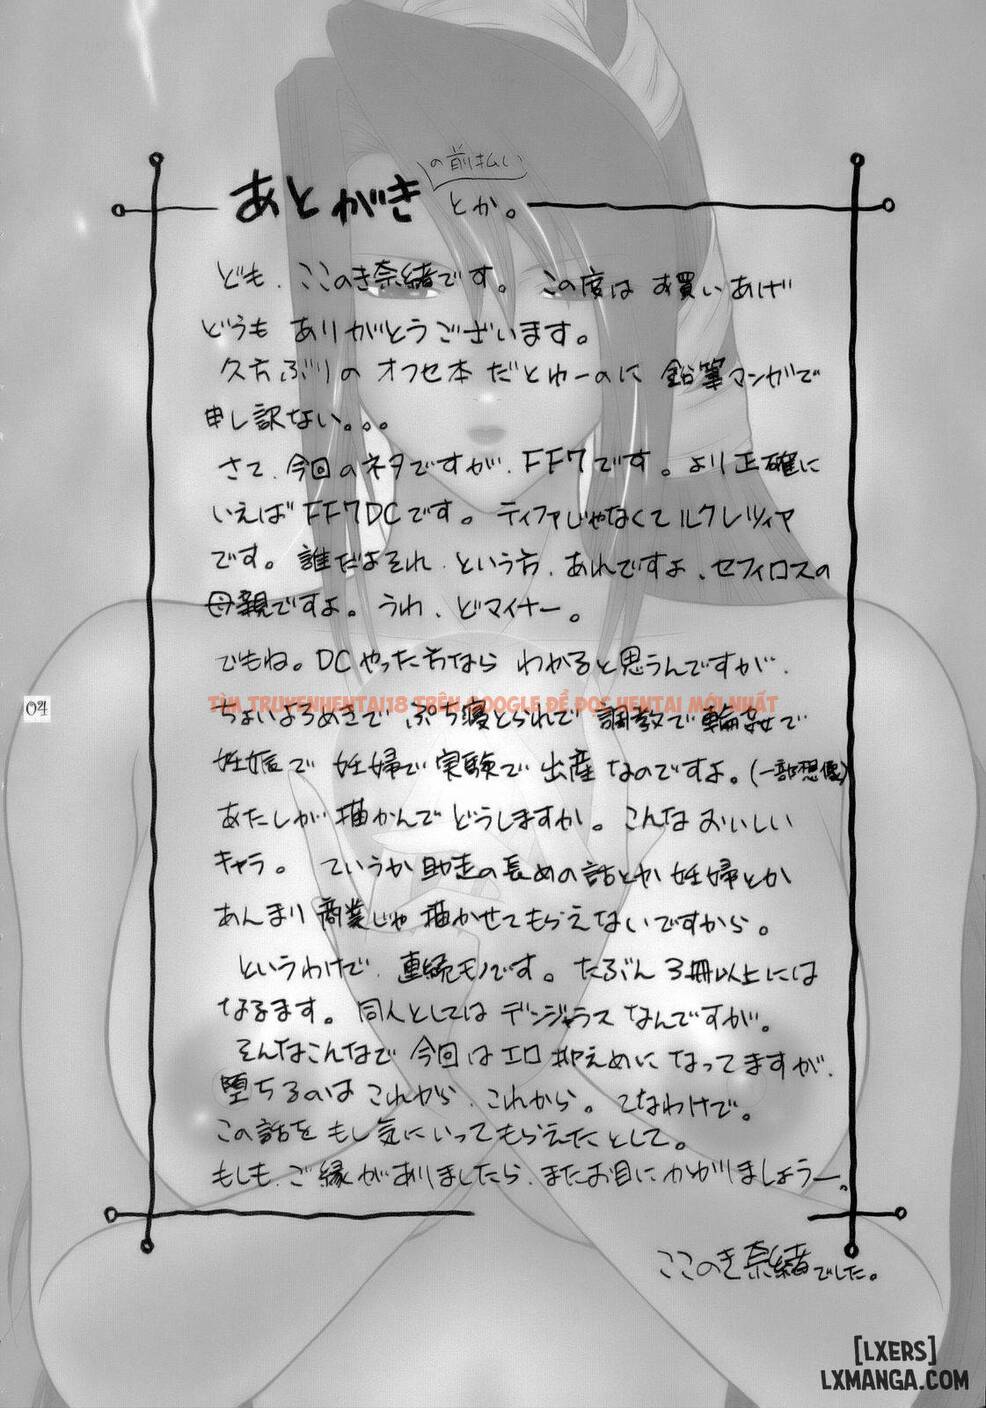 あとがき
の前払い
とか。
ども、ここのき奈緒です。この度はお買いあげ
どうもありがとうございます。
久方ぶりのオフセ本だとゆーのに鉛筆マンガで
申し訳ない。。。
さて、今回のネタですが、FF7です。より正確に
いえばFF7DCです。ティファじゃなくてルクレツィア
です。誰だよそれ、という方、あれですよ、セフィロスの
母親ですよ。うわ、どマイナー。
でもね。DCやった方なら わかると思うんですが、
TÌM TRUYENHENTAI18 TRÊN GOOGLE ĐỂ ĐỌC HENTAI MỚI NHẤT
04
ちょいよろめきで ぷち寝とられで 調教で輪姦で
妊娠で 妊婦で実験で出産なのですよ。(一部想像)
あたしが描かんでどうしますか。こんなおいしい
キャラ。ていうか助走の長めの話とか妊婦とか
あんまり商業じゃ描かせてもらえないですから。
というわけで、連続モノです。たぶん3冊以上には
なるます。同人としてはデンジャラスなんですが。
そんなこんなで今回はエロ抑えめになってますが、
堕ちるのはこれから、これから。てなわけで。
この話をもし気にいってもらえたとして。
もしも、ご縁がありましたら、またお目にかかりましょうー。
ここのき奈緒でした。
[LXERS]
LXMANGA.COM